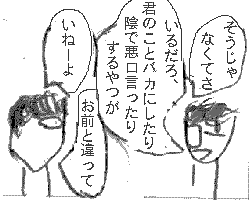 そうじゃ
なくてさ
いるだろ、
君のことバカにしたり
陰で悪口言ったり
するやつが
いねーよ
お前と違って